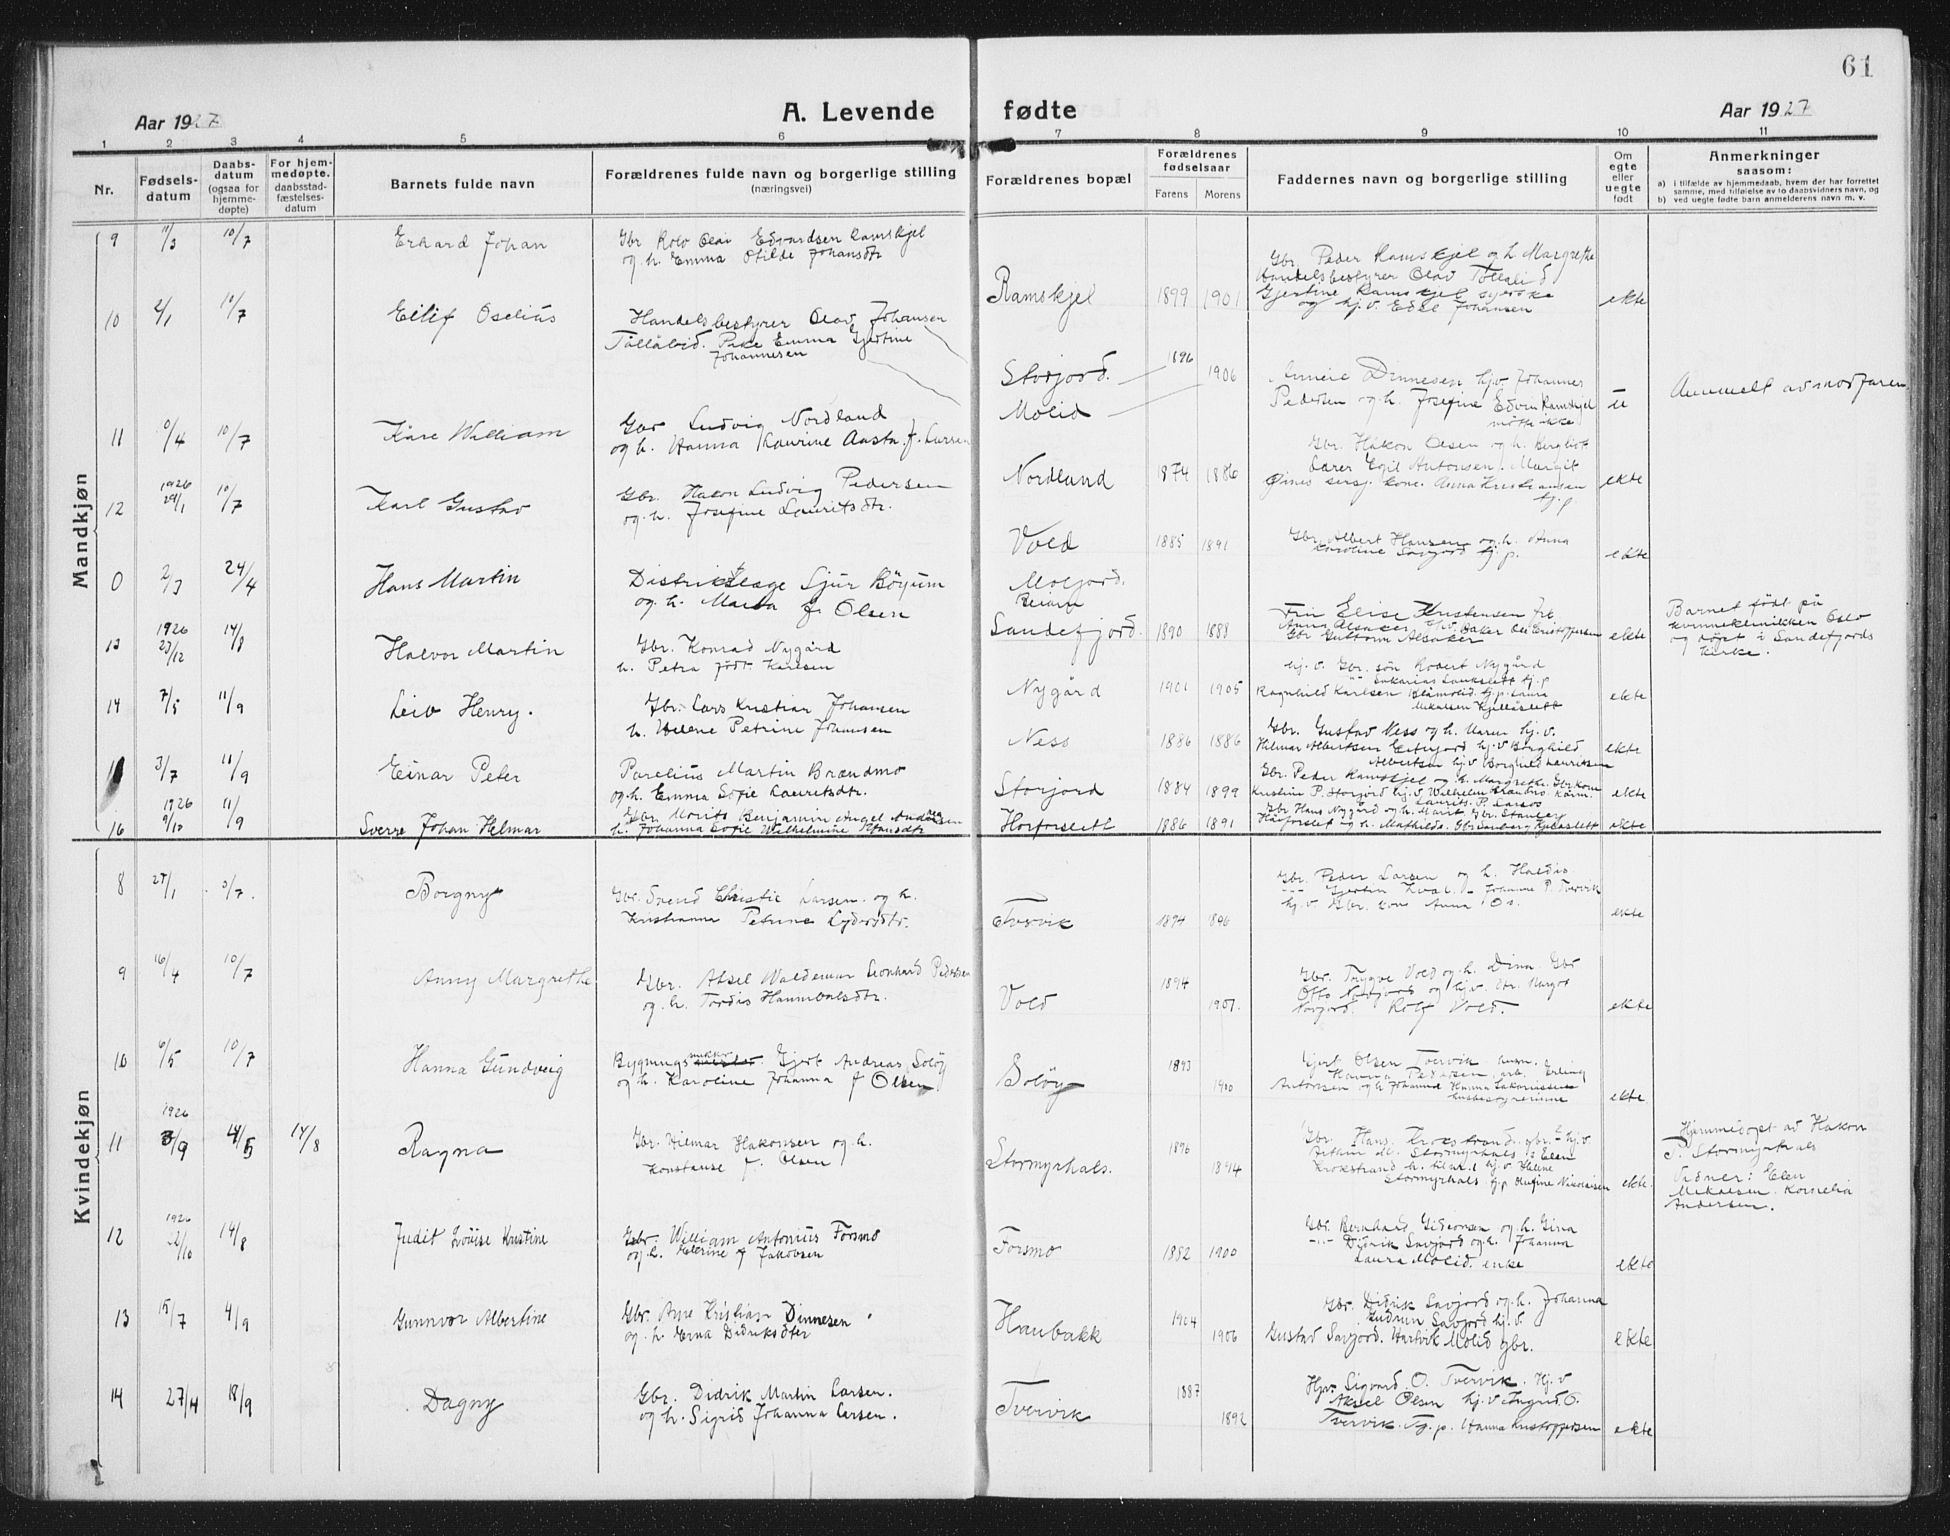 61
Aar 1927
A. Levende fødte
Aar 1927
1 2 3 4 5 6 7 8 9 10 11
Nr.
Fødsels-
datum
Daabs-
datum
(ogsaa for
hjemme-
døpte)
For hjem-
medøpte.
daabsstad-
fæstelses-
datum
Barnets fulde navn
Forældrenes fulde navn og borgerlige stilling
(næringsvei)
Forældrenes bopæl
Forældrenes
fødselsaar
Farens Morens
Faddernes navn og borgerlige stilling
Om
egte
eller
uegte
født
Anmerkninger
saasom:
a) i tilfælde av hjemmedaab, hvem der har forrettet
samme, med tilføielse av to daabsvidners navn, og
b) ved uegte fødte barn anmelderens navn m. v.
Mandkjøn
9 11/3 10/7 Erhard Johan
Gbr Rolv Olai Edvardsen Ramskjel
og h. Emma Otilde Johansdtr
Ramskjel 1899 1901
Gbr. Peder Ramskjel og h Margrethe
Handelsbestyrer Olav
Gjertine Ramskjel syerske
og hj. v. Johansen
ekte
10 2/1 10/7 Eilif Oselius
Handelsbestyrer Olav Johansen
Tollåbid. Pike Emma Gjertine
Johannesen
Storjord. 1896
Molid 1906
Dinnesen hjv Johannes
Pedersen og h. Josefine Edvin Ramskjel
møtte ikke
u
Anmelt av morfaren
11 10/7 Kåre William
Gbr Ludvig Nordland
og h. Hanna Laurine Aasta f. Larsen
Nordland 1874 1886
Gbr. Håkon Olsen og h. Bergliot
Lærer Egil Antonsen. Margit
kone. Anna Kristiansen
hj. p
ekte
12 1926 29/1 10/7 Karl Gustav
Gbr. Hakon Ludvig Pedersen
og h. Josefine Lauritsdtr.
Vold 1885 1891
Gbr. Albert Hansen og h. Anna
Karoline Savjord hj. p.
ekte
0 2/3 24/4 Hans Martin
Distriktslæge Sjur Böyum
og h. Maria f. Olsen
Moljord.
Beiarn
Sandefjord. 1890 1888
Elise Kristensen
Anna Alsaker
Gbr Guttorm Alsaker
ekte
Barnet födt på
kvinneklinikken Oslo
og döpt i Sandefjords
kirke.
13 1926 27/12 14/8 Halvor Martin
Gbr. Konrad Nygård
h. Petra födt Karlsen
Nygård 1901 1905
hj. v. Gbr. sön Robert Nygård
Ragnhild Karlsen hj. p. Laura
ekte
14 7/5 11/9 Leiv Henry.
Gbr. Lars Kristian Johansen
h. Helene Petrine Johansen
Ness 1886 1886
Gbr. Gustav Ness og h. Maren hj. v.
Hilmar Albertsen Eiterjord hj. v Borghild
ekte
3/7 11/9 Einar Peter
Parelius Martin Brændmo
og h. Emma Sofie Lauritsdtr.
Storjord 1884 1899
Gbr. Peder Ramskjel og h. Margrethe.
Kristine P. Storjord hj. v. Wilhelm
ekte
16 1926 9/10 11/9 Sverre Johan Helmar
Gbr. Morits Benjamin Angel Andersen
h. Johanna Sofie Wilhelmine
Horforslett 1886 1891
Gbr Hans Nygård og h. Marit
og h. Mathilde.
ekte
Kvindekjøn
8 27/1 Borgny
Gbr. Svend Christie Larsen og h.
Kristianna Petrine
Tvervik 1894 1896
Gbr. Peder Larsen og h. Haldis
Johanne P. Tvervik
hj. v Gbr. kone Anna Os.
ekte
9 16/4 10/7 Anny Margrethe
Gbr. Aksel Waldemar Leonhard Pedersen
og h. Tordis Hannibalsdtr.
Vold 1894 1907.
Gbr. Trygve Vold og h. Dina. Gbr
Otto Nordjord og hj. v. dtr. Margot
Rolf Vold.
ekte
10 6/5 10/7 Hanna Gundveig
Bygnings Gjert Andreas Solöy
og h. Karoline Johanna f Olsen
Solöy 1893 1900
Gjert Olsen Tvervik
Hanna Pedersen, Erling
Antonsen og h Johanne Hanna Zakariassen
husbestyrerinne
ekte
11 1926 3/9 4/5 14/8 Ragna
Gbr. Hilmar Hakonsen og h.
Konstanse f. Olsen
Stormyrhals. 1896 1894
Gbr. Hans Krokstrand
Stormyrhals
Krokstrand hj. v Helene
Stormyrhals hj. p Olufine Nikolaisen
ekte.
Hjemmedöpt av Hakon
P. Stormyrhals
Vidner: Elen
Mikalsen. Kornelia
Andersen.
12 1926 22/10 14/8 Judit Lovise Kristine
Gbr. William Antonius Forsmo
og h. f Jakobsen
Forsmo 1882 1900
Gbr. Bernhard Gideonsen og h. Gina
Didrik Savjord og h. Johanna
Laura Molid. enke
ekte
13 15/7 4/9 Gunnvor Albertine
Gbr. Arne Kristian Dinnesen
og h Erna Didriksdtr
Haubakk 1904 1906
Gbr. Didrik Savjord og h. Johanna
Gudrun Savjord hj. v.
Gustav Savjord. Hartvik Molid gbr.
ekte
14 27/4 18/9 Dagny
Gbr. Didrik Martin Larsen.
og h. Sigrid Johanna Larsen.
Tvervik 1887 1892
Hjv. Sigvard O. Tvervik. Hj. v
Aksel Olsen hj. v Ingrid O.
Tvervik. Tj. p. Hanna Kristoffersen
ekte